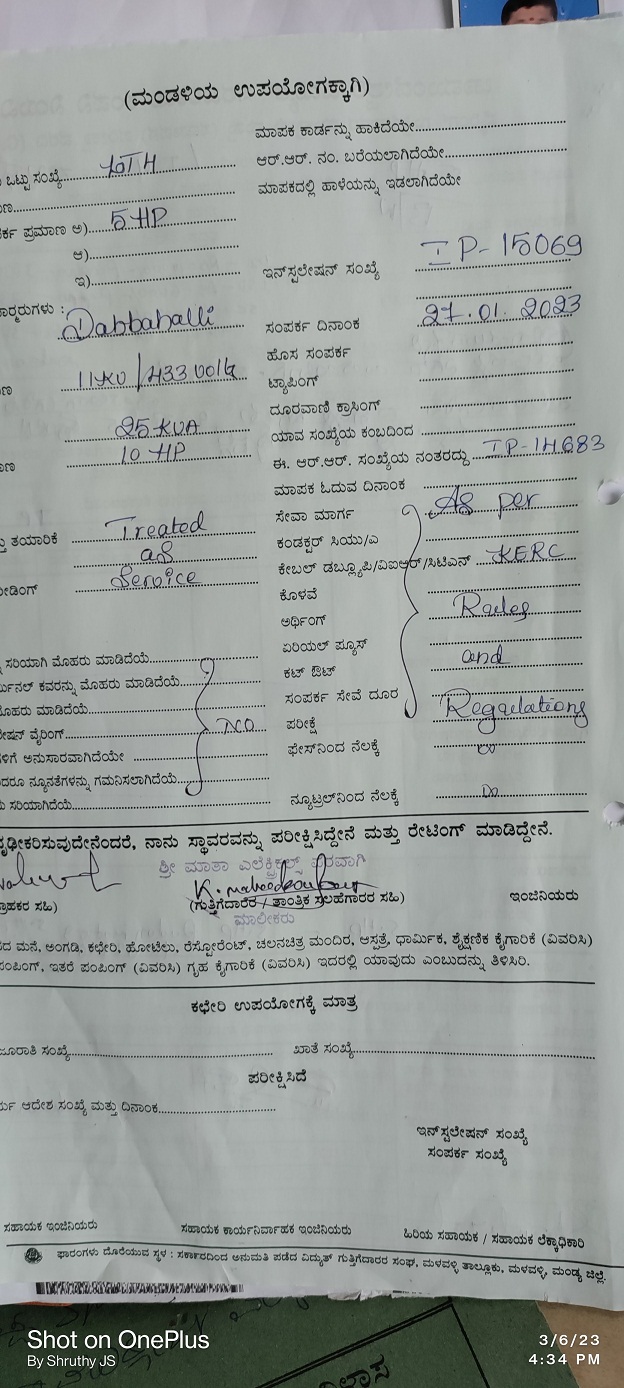 (ಮಂಡಳಿಯ ಉಪಯೋಗಕ್ಕಾಗಿ)
ಮಾಪಕ ಕಾರ್ಡನ್ನು ಹಾಕಿದೆಯೇ
ಒಟ್ಟು ಸಂಖ್ಯೆ
ಆರ್.ಆರ್. ನಂ. ಬರೆಯಲಾಗಿದೆಯೇ
ಮಾಪಕದಲ್ಲಿ ಹಾಳೆಯನ್ನು ಇಡಲಾಗಿದೆಯೇ
ಪ್ರಮಾಣ ಅ) 5 HP
ಆ)
ಇ)
ಇನ್‌ಸ್ಟಲೇಷನ್ ಸಂಖ್ಯೆ IP-15069
Dabbahalli
ಸಂಪರ್ಕ ದಿನಾಂಕ 27.01.2023
ಹೊಸ ಸಂಪರ್ಕ
11KV/433 Volts
ಟ್ಯಾಪಿಂಗ್
ದೂರವಾಣಿ ಕ್ರಾಸಿಂಗ್
25 KVA ಯಾವ ಸಂಖ್ಯೆಯ ಕಂಬದಿಂದ
10 HP ಈ. ಆರ್.ಆರ್. ಸಂಖ್ಯೆಯ ನಂತರದ್ದು IP-14683
ಮಾಪಕ ಓದುವ ದಿನಾಂಕ
ತಯಾರಿಕೆ Treated ಸೇವಾ ಮಾರ್ಗ As per
as ಕಂಡಕ್ಟರ್ ಸಿಯು/ಎ
Service ಕೇಬಲ್ ಡಬ್ಲ್ಯೂಪಿ/ವಿಐಆರ್/ಸಿಟಿಎಸ್ KERC
ಕೊಳವೆ
ಅರ್ಥಿಂಗ್ Rules
ಏರಿಯಲ್ ಪ್ಯೂಸ್
ಸರಿಯಾಗಿ ಮೊಹರು ಮಾಡಿದೆಯೆ ಕಟ್ ಔಟ್ and
ಕವರನ್ನು ಮೊಹರು ಮಾಡಿದೆಯೆ ಸಂಪರ್ಕ ಸೇವೆ ದೂರ
ಮಾಡಿದೆಯೆ Regulations
ವೈರಿಂಗ್ NO ಪರೀಕ್ಷೆ
ಅನುಸಾರವಾಗಿದೆಯೇ ಫೇಸ್‌ನಿಂದ ನೆಲಕ್ಕೆ
ನ್ಯೂನತೆಗಳನ್ನು ಗಮನಿಸಲಾಗಿದೆಯೆ
ಸರಿಯಾಗಿದೆಯೆ ನ್ಯೂಟ್ರಲ್‌ನಿಂದ ನೆಲಕ್ಕೆ Do
ನಾನು ಸ್ಥಾವರವನ್ನು ಪರೀಕ್ಷಿಸಿದ್ದೇನೆ ಮತ್ತು ರೇಟಿಂಗ್ ಮಾಡಿದ್ದೇನೆ.
ಶ್ರೀ ಮಾತಾ ಎಲೆಕ್ಟ್ರಿಕಲ್ಸ್ ಪರವಾಗಿ
ಸಹಿ) (ಗುತ್ತಿಗೆದಾರರ / ತಾಂತ್ರಿಕ ಸಲಹೆಗಾರರ ಸಹಿ) ಇಂಜಿನಿಯರು
ಮಾಲೀಕರು
ಮನೆ, ಅಂಗಡಿ, ಕಛೇರಿ, ಹೋಟೆಲು, ರೆಸ್ಟೋರೆಂಟ್, ಚಲನಚಿತ್ರ ಮಂದಿರ, ಆಸ್ಪತ್ರೆ, ಧಾರ್ಮಿಕ, ಶೈಕ್ಷಣಿಕ ಕೈಗಾರಿಕೆ (ವಿವರಿಸಿ)
ಇತರೆ ಪಂಪಿಂಗ್ (ವಿವರಿಸಿ) ಗೃಹ ಕೈಗಾರಿಕೆ (ವಿವರಿಸಿ) ಇದರಲ್ಲಿ ಯಾವುದು ಎಂಬುದನ್ನು ತಿಳಿಸಿರಿ.
ಕಛೇರಿ ಉಪಯೋಗಕ್ಕೆ ಮಾತ್ರ
ಸಂಖ್ಯೆ ಖಾತೆ ಸಂಖ್ಯೆ
ಪರೀಕ್ಷಿಸಿದೆ
ಆದೇಶ ಸಂಖ್ಯೆ ಮತ್ತು ದಿನಾಂಕ
ಇನ್‌ಸ್ಟಲೇಷನ್ ಸಂಖ್ಯೆ
ಸಂಪರ್ಕ ಸಂಖ್ಯೆ
ಸಹಾಯಕ ಇಂಜಿನಿಯರು ಸಹಾಯಕ ಕಾರ್ಯನಿರ್ವಾಹಕ ಇಂಜಿನಿಯರು ಹಿರಿಯ ಸಹಾಯಕ / ಸಹಾಯಕ ಲೆಕ್ಕಾಧಿಕಾರಿ
ಫಾರಂಗಳು ದೊರೆಯುವ ಸ್ಥಳ : ಸರ್ಕಾರದಿಂದ ಅನುಮತಿ ಪಡೆದ ವಿದ್ಯುತ್ ಗುತ್ತಿಗೆದಾರರ ಸಂಘ, ಮಳವಳ್ಳಿ ತಾಲ್ಲೂಕು, ಮಳವಳ್ಳಿ, ಮಂಡ್ಯ ಜಿಲ್ಲೆ.
Shot on OnePlus
By Shruthy JS
3/6/23
4:34 PM